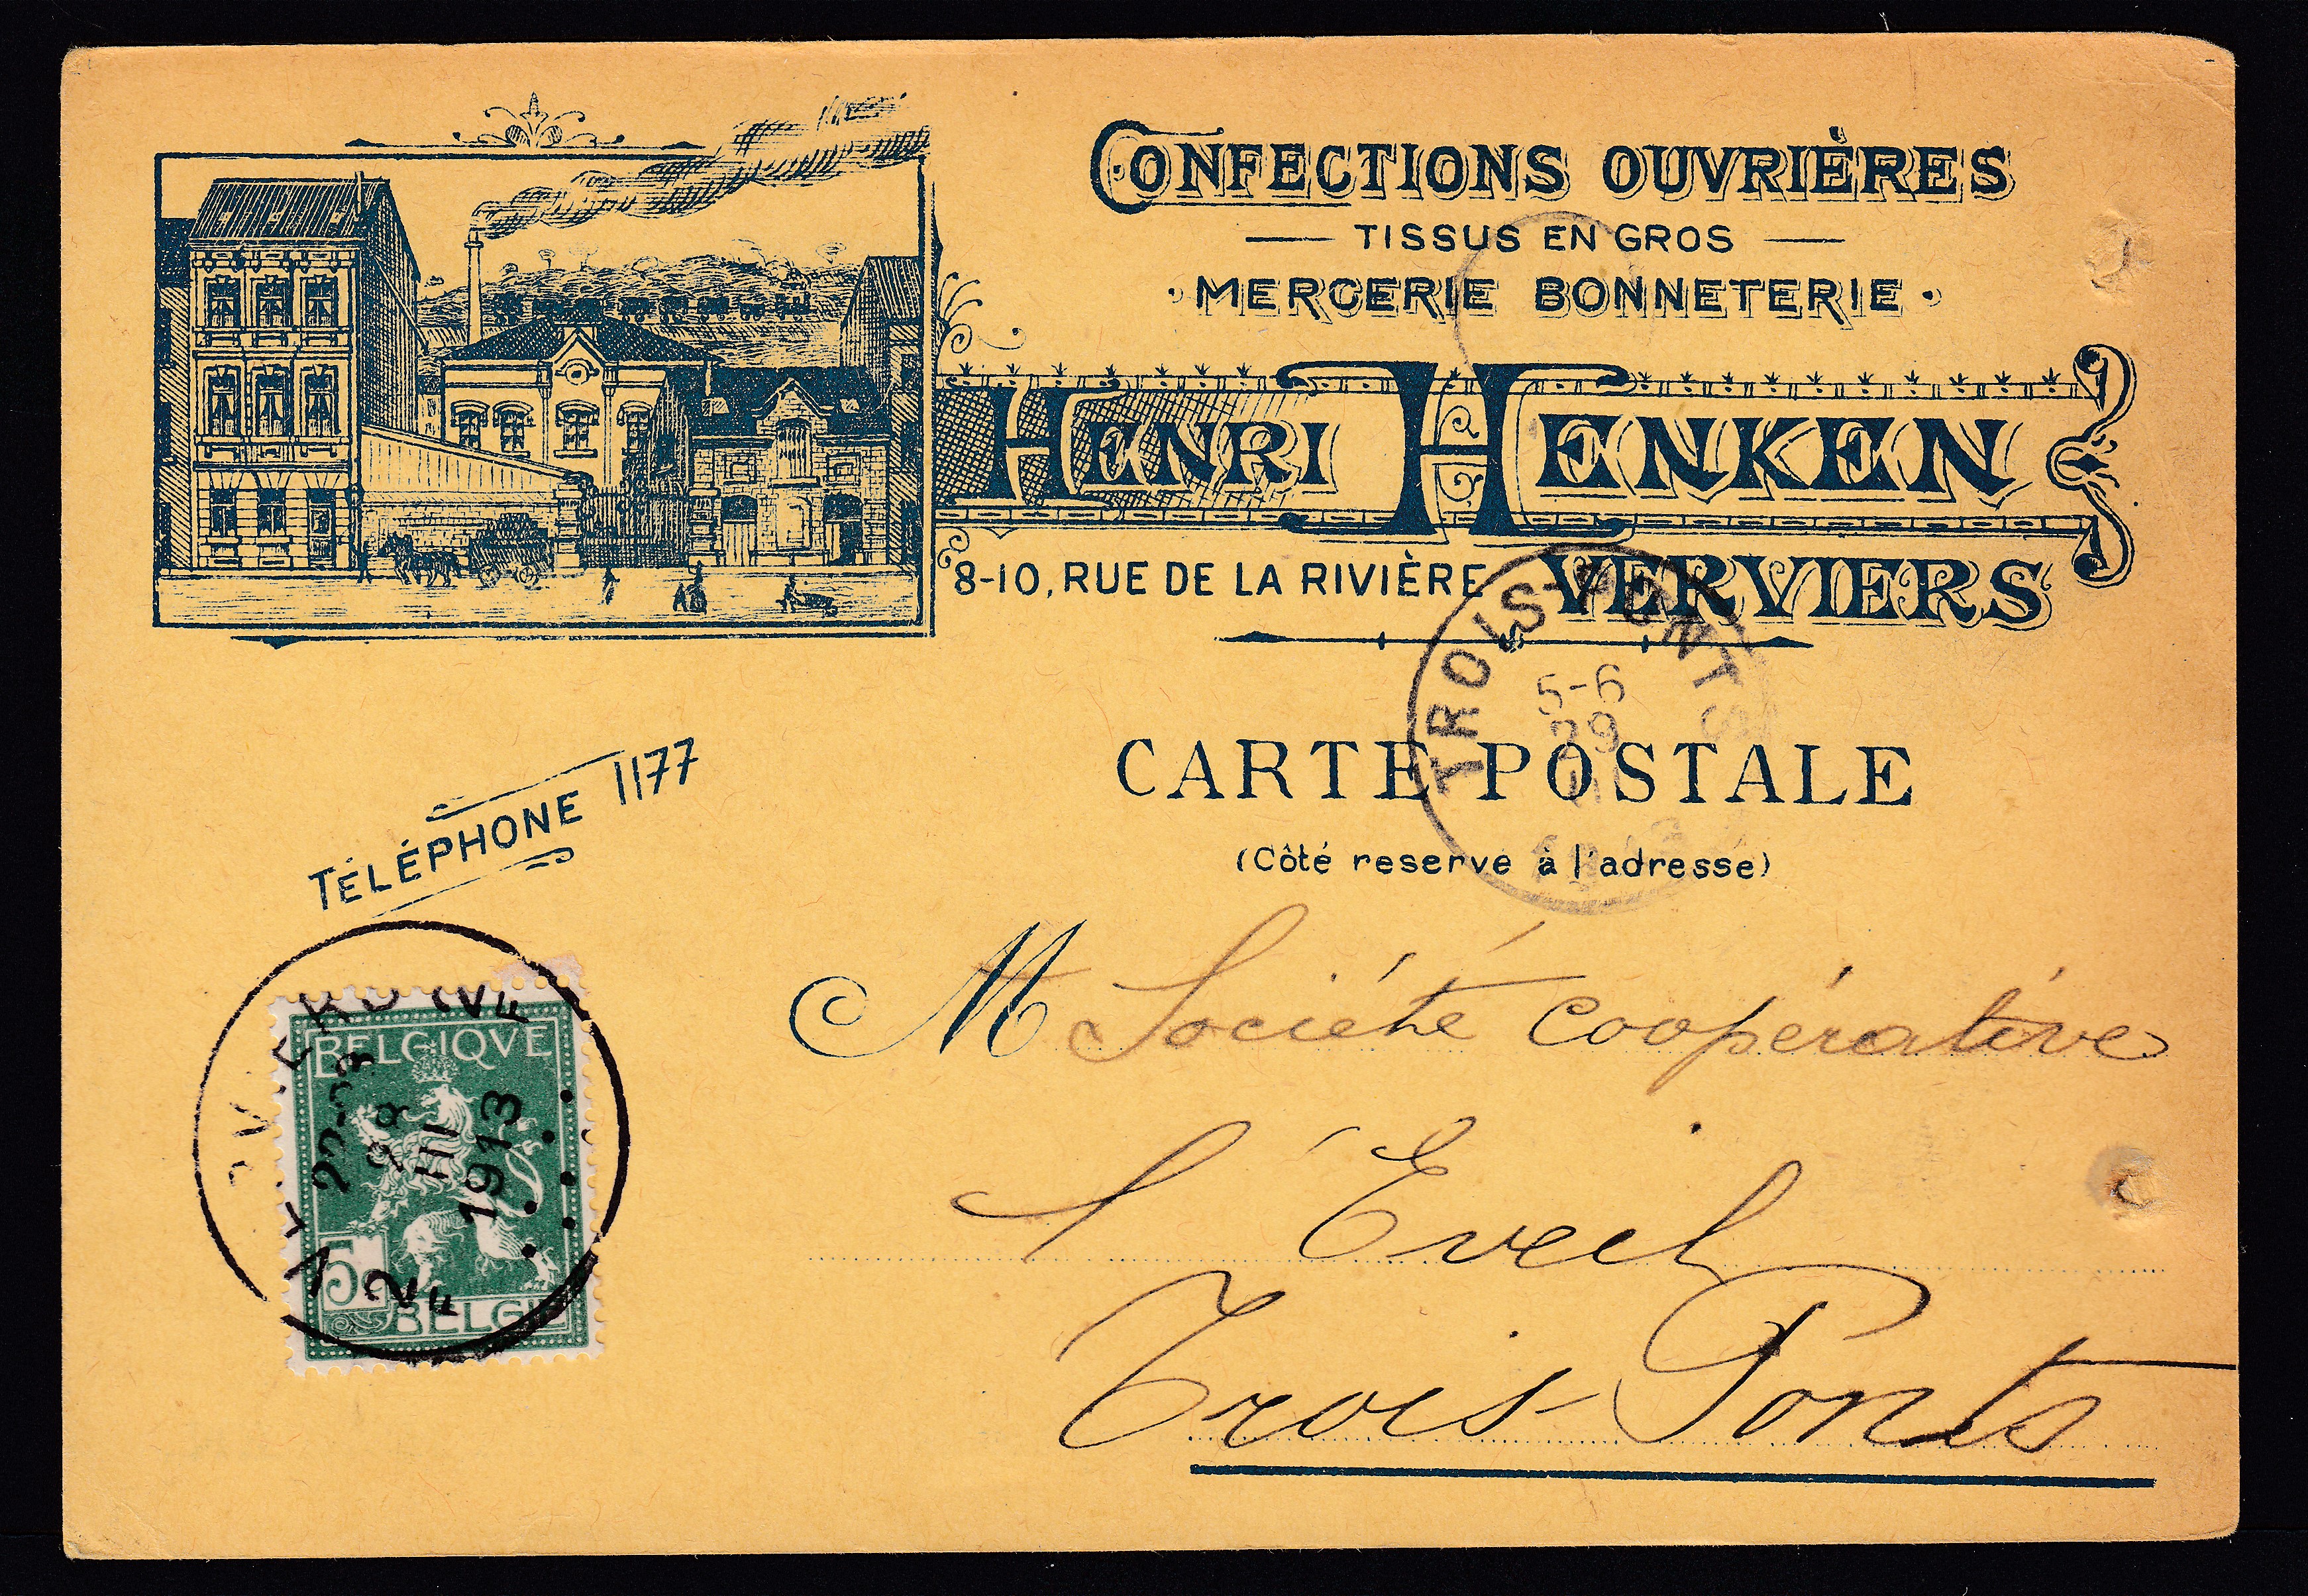 CONFECTIONS OUVRIÈRES
TISSUS EN GROS
MERCERIE BONNETERIE
HENRI HENKEN
8-10, RUE DE LA RIVIÈRE VERVIERS
TÉLÉPHONE 1177
CARTE POSTALE
(Côté reserve à l'adresse)
TROIS-PONTS
5-6
29
M Société Coopérative
l'Eveil
Trois-Ponts
BELGIQVE
5
BELGI
22-23
28
III
1913
2
F F